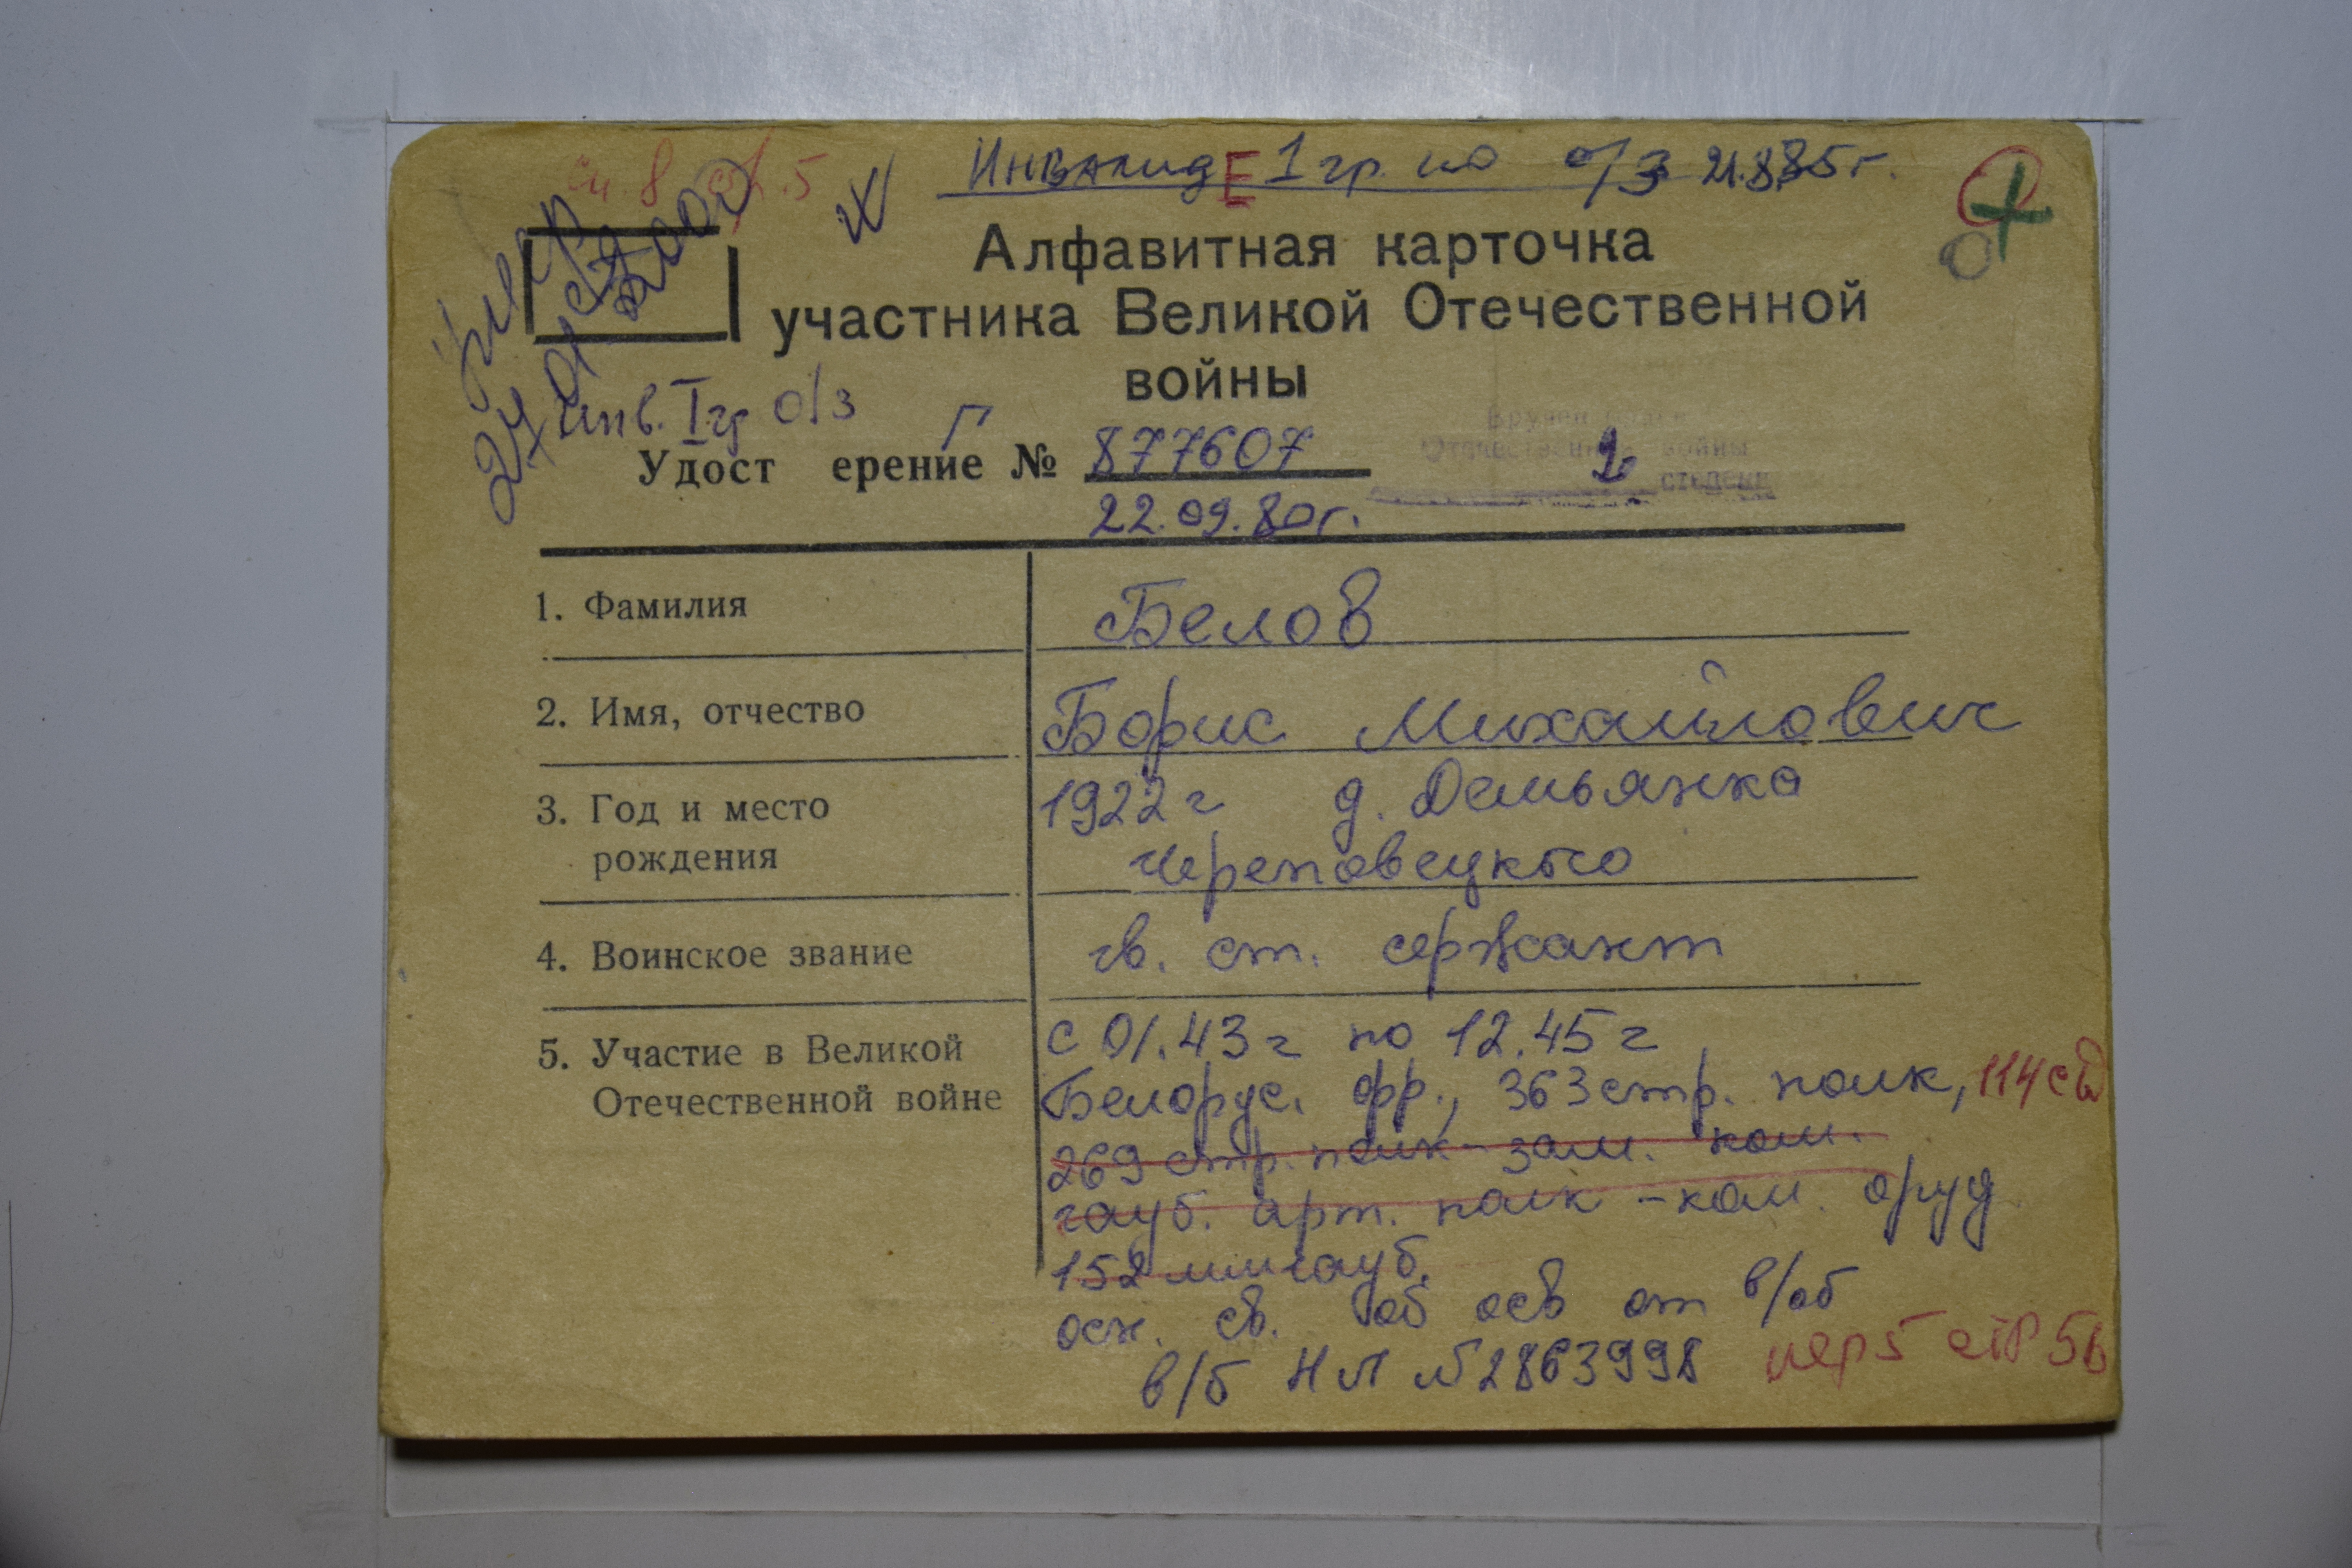 сч. 8 стр. 5
Инвалид Е 1 гр. по о/з 21.8.85 г.
Алфавитная карточка
участника Великой Отечественной
войны
инв. I гр о/з Г
Удост ерение № 877607
22.09.80г.
Отечественной войны
2 степени
1. Фамилия Белов
2. Имя, отчество Борис Михайлович
3. Год и место 1922 г д. Демьянка
рождения Череповецкого
4. Воинское звание гв. ст. сержант
5. Участие в Великой с 01.43 г по 12.45 г
Отечественной войне Белорус. фр., 363 стр. полк, 114 сд
269 стр. полк - зам. ком.
гауб. арт. полк - ком. оруд
152 мм гауб.
осн. св. об осв от в/об
в/б НЛ № 2863998 стр 56